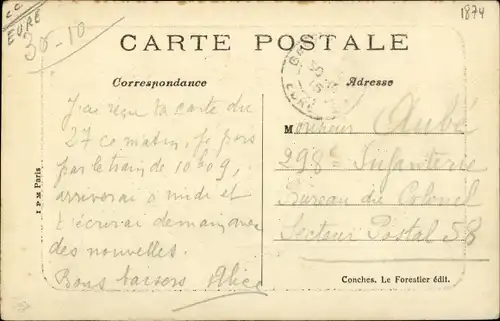 CC
EURE
30-10
1874
CARTE POSTALE
Correspondance
Adresse
J'ai reçu ta carte du
27 ce matin, je pars
par le train de 10h09,
arriverai à midi et
t'écrirai demain avec
des nouvelles.
Bons baisers Alice
Monsieur Aubé
298e Infanterie
Bureau du Colonel
Secteur Postal 58
I P M Paris
Conches. Le Forestier édit.